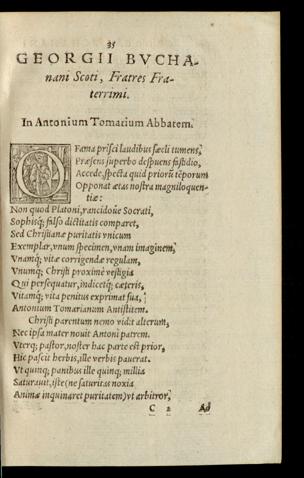 35
GEORGII BVCHA-
nani Scoti, Fratres Fra-
terrimi.
In Antonium Tomarium Abbatem.
O Fama prisci laudibus sæcli tumens,
Præsens superbo despuens fastidio,
Accede, specta quid priorũ tẽporum
Opponat ætas nostra magniloquen-
tiæ:
Non quod Platoni, rancidoue Socrati,
Sophisq; falso dictitatis comparet,
Sed Christianæ puritatis vnicum
Exemplar, vnum specimen, vnam imaginem,
Vnamq; vitæ corrigendæ regulam,
Vnumq; Christi proximè vestigia
Qui persequatur, indicetq; cæteris,
Vitamq; vita penitus exprimat sua,
Antonium Tomarianum Antistitem.
Christi parentum nemo vidit alterum,
Nec ipsa mater nouit Antoni patrem.
Vterq; pastor, noster hac parte est prior,
Hic pascit herbis, ille verbis pauerat.
Vt quinq; panibus ille quinq; millia
Saturauit, iste (ne saturitas noxia
Animæ inquinaret puritatem) vt arbitror,
C 2 Ad